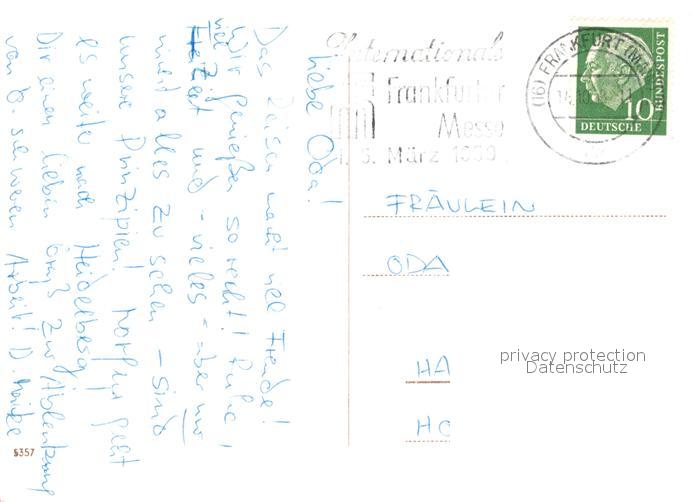 Liebe Oda!
Das Reisen macht viel Freude!
Wir genießen so recht! Ruhe,
viel Freizeit und - vieles - aber nur
nicht alles zu sehen - sind
unsere Prinzipien! Morgen geht
es weiter nach Heidelberg
Dir einen lieben Gruß zur Ablenkung
von d. schweren Arbeit! D.
Internationale
Frankfurter
Messe
März
(16) FRANKFURT (MAIN)
10
DEUTSCHE
BUNDESPOST
FRÄULEIN
ODA
HA
HO
privacy protection
Datenschutz
5357